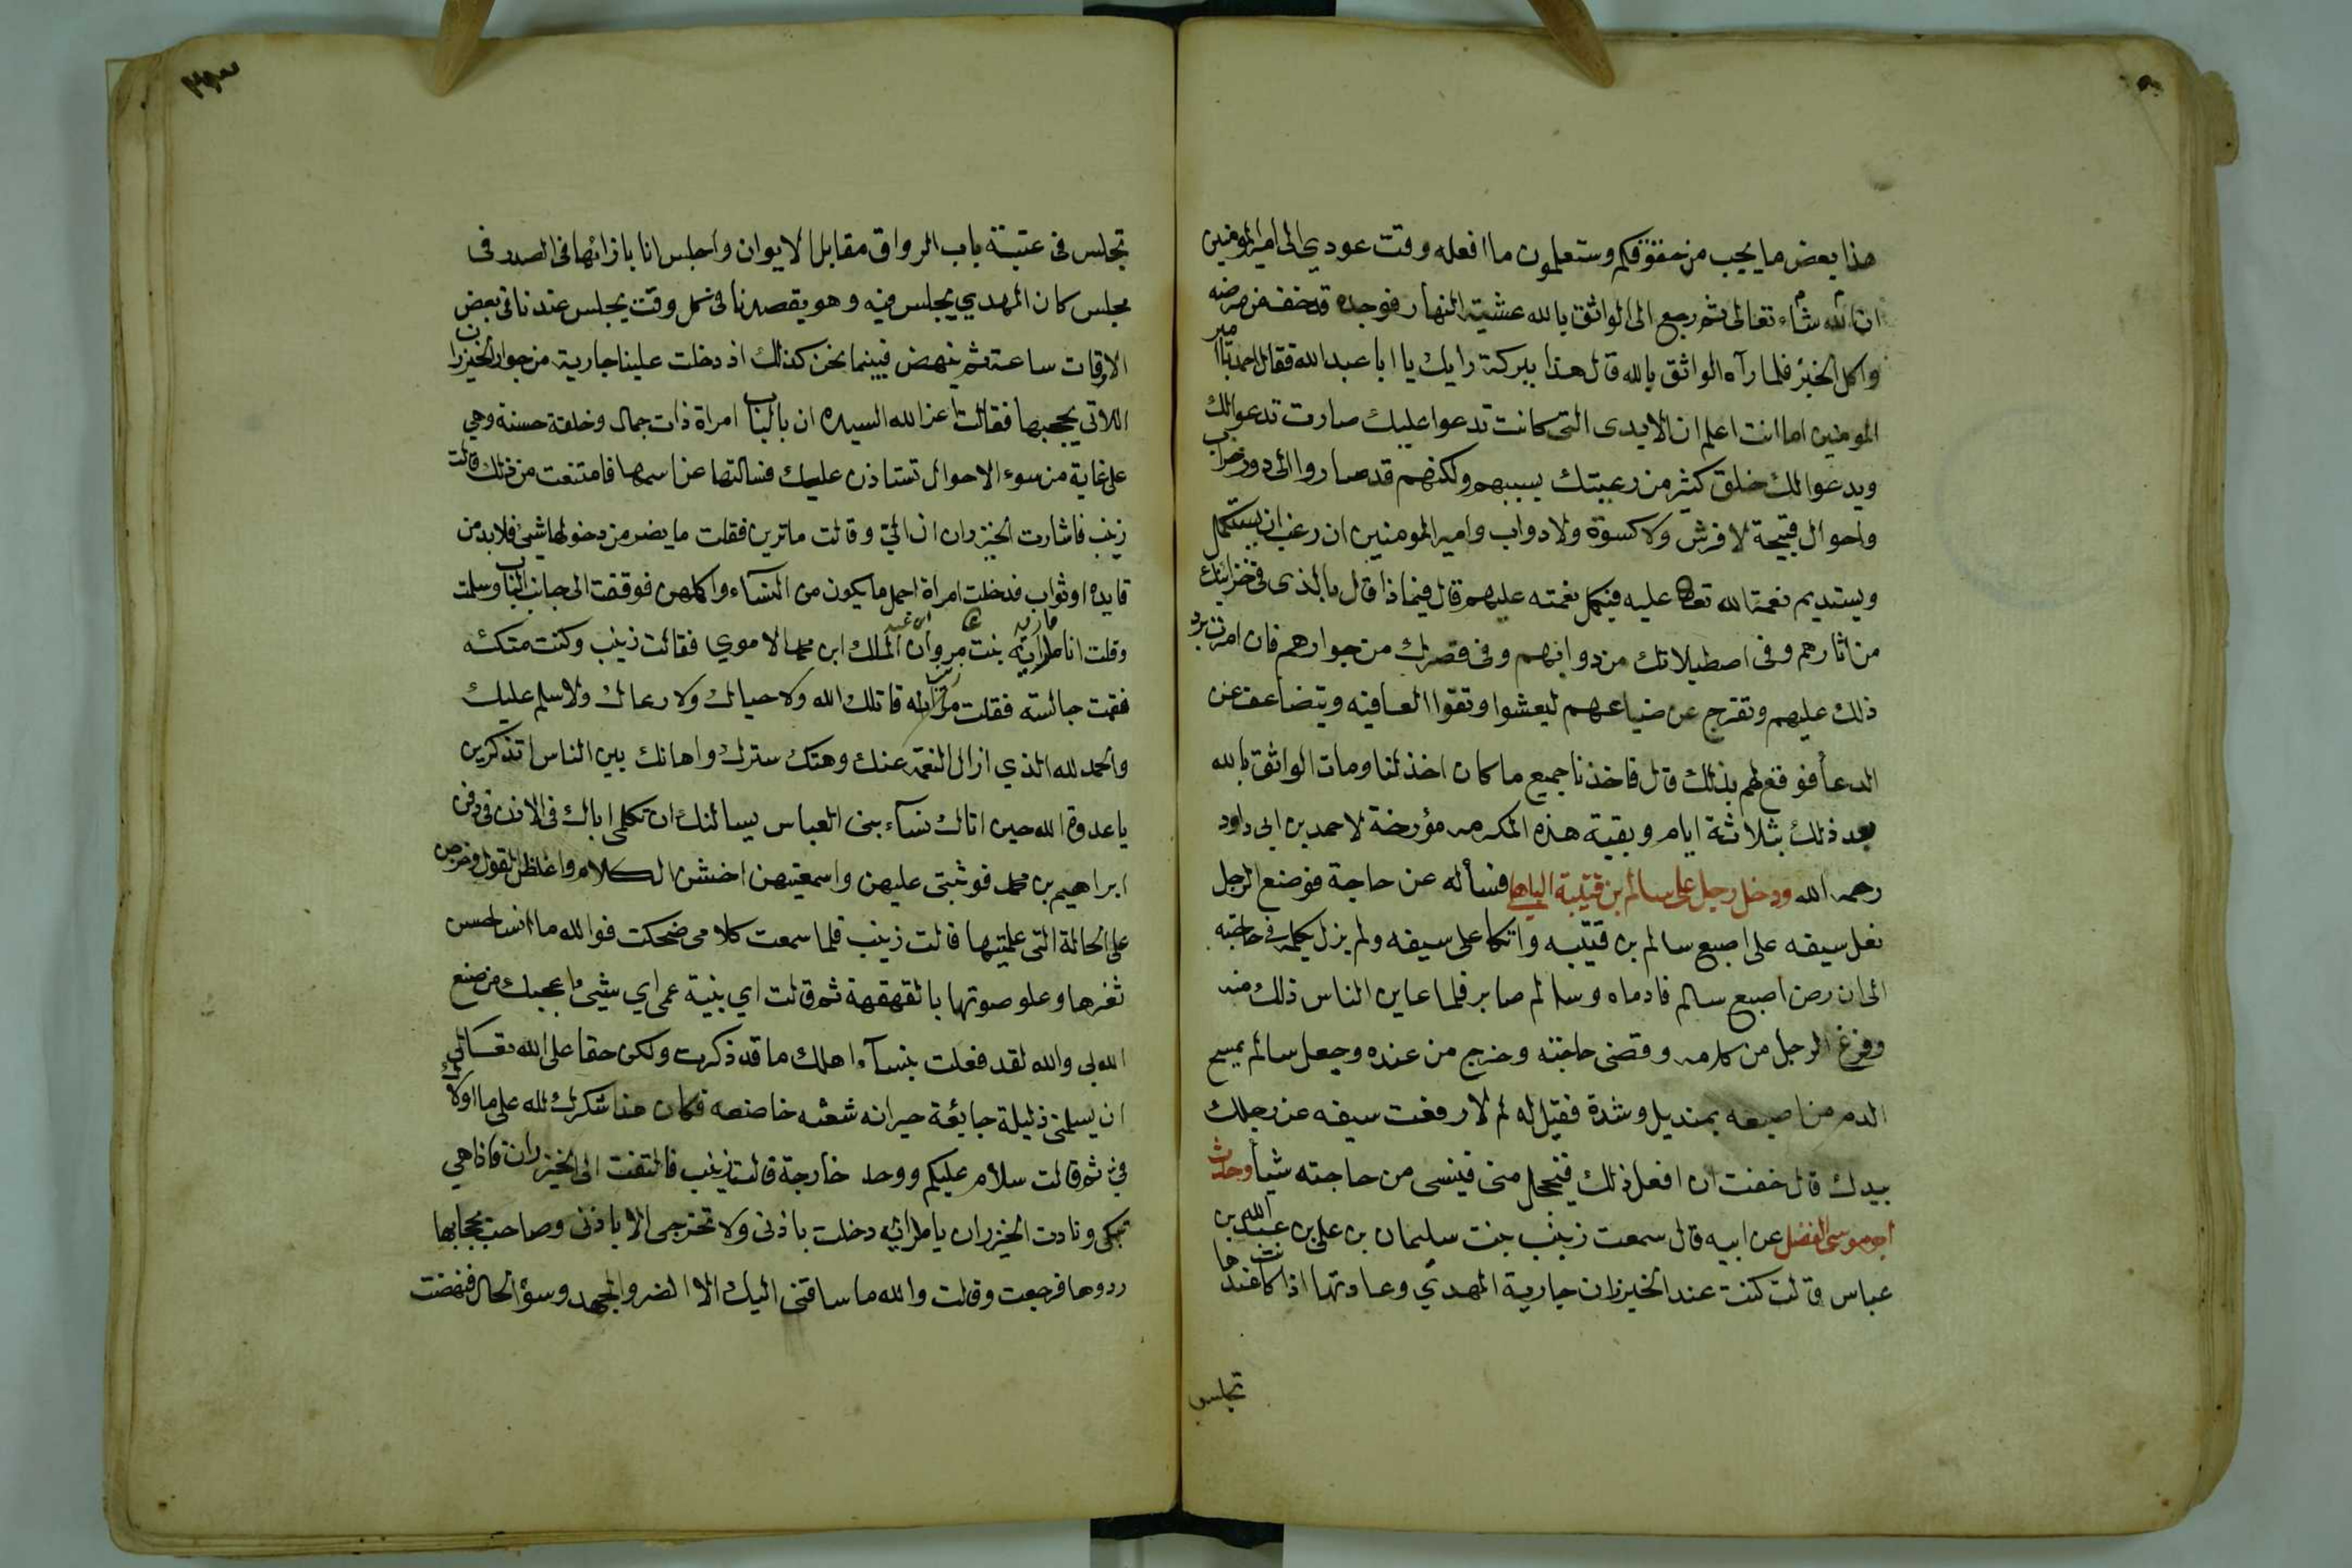 هذا بعض ما يجب من حقوقكم وستعلمون ما افعله وقت عودي الى امير المومنين
ان شاء الله تعالى ثم رجع الى الواثق بالله عشية النهار فوجده قد خفف من مرضه
واكل الخبز فلما رآه الواثق بالله قال هذا ببركة رايك يا ابا عبد الله فقال الحمد لله يا امير
المومنين اما انت اعلم ان الايدى التى كانت تدعوا عليك صارت تدعوا لك
ويدعوا لك خلق كثير من رعيتك بسببهم ولكنهم قد صاروا الى دور خراب
واحوال قبيحة لا فرش ولا كسوة ولا دواب وامير المومنين ان رغب ان يستكمل
ويستديم نعمة الله تعا عليه فيكمل نعمته عليهم قال فيماذا قال بالذى فى خزاينك
من اثارهم وفى اصطبلاتك من دوابهم وفى قصرك من جوارهم فان امرت برد
ذلك عليهم وتفرج عن ضياعهم ليعشوا وتقوا العافيه ويتضاعف عن
الدعأ فوقع لهم بذلك قال فاخذنا جميع ما كان اخذ لنا ومات الواثق بالله
بعد ذلك بثلاثة ايام وبقية هذه المكرمه مؤرخة لاحمد بن ابى داود
رحمه الله ودخل رجل على سالم بن قتيبة الباهلى فسأله عن حاجة فوضع الرجل
نعل سيفه على اصبع سالم بن قتيبه واتكا على سيفه ولم يزل يكلمه فى حاجته
الى ان رض اصبع سالم فادماه وسالم صابر فلما عاين الناس ذلك منه
وفرغ الرجل من كلامه وقضى حاجته وخرج من عنده وجعل سالم يمسح
الدم من اصبعه بمنديل وشدة فقيل له لم لا رفعت سيفه عن رجلك
بيدك قال خفت ان افعل ذلك فيخجل منى فينسى من حاجته شيأ وحدث
ابو موسى الفضل عن ابيه قال سمعت زينب بنت سليمان بن على بن عبد الله بن
عباس قالت كنت عند الخيزران جارية المهدي وعادتها اذا كنت عندها
تجلس
٢٩٣
تجلس فى عتبة باب الرواق مقابل الايوان واجلس انا بازائها فى الصدر فى
مجلس كان المهدي يجلس فيه وهو يقصدنا فى كل وقت يجلس عندنا فى بعض
الاوقات ساعة ثم ينهض فبينما نحن كذلك اذ دخلت علينا جارية من جوار الخيزران
اللاتى يحجبها فقالت اعز الله السيده ان بالباب امراة ذات جمال وخلقة حسنة وهي
على غاية من سوء الاحوال تستاذن عليك فسالتها عن اسمها فامتنعت من ذلك قالت
زينب فاشارت الخيزران الى وقالت ما ترين فقلت ما يضر من دخولها شيئ فلابد من
فايده او ثواب فدخلت امراة اجمل ما يكون من النساء واكلهن فوقفت الى جانب الباب وسلمت
وقلت انا مارية بنت مروان الملك ابن محمد الاموي فقالت زينب وكنت متكئه
فقمت جالسته فقلت قاتلك الله ولا حياك ولا رعاك ولا سلم عليك
والحمد لله الذي ازال النعمة عنك وهتك سترك واهانك بين الناس اتذكرين
يا عدوة الله حين اتاك نسآء بنى العباس يسالنك ان تكلمى اباك فى الاذن فى دفن
ابراهيم بن محمد فوثبتى عليهن واسمعتيهن اخشن الكلام واغلظ القول وخرجن
على الحالة التى علمتيها قالت زينب فلما سمعت كلامى ضحكت فوالله ما انسا حسن
ثغرها وعلو صوتها بالقهقهة ثم قالت اي بنية عمى اي شيئ اعجبك من صنع
الله بى والله لقد فعلت بنسآء اهلك ما قد ذكرت ولكن حقا على الله تعالى
ان يسلمنى ذليلة جايعة حيرانه شعثه خاضعه فكان هذا شكرك لله على ما اولاك
فى ثم قالت سلام عليكم ووحد خارجة قالت زينب فالتفت الى الخيزران فاذا هي
تبكى ونادت الخيزران يا دخلت باذنى ولا تخرجى الا باذنى وصاحت بحجابها
ردوها فرجعت وقالت والله ما ساقنى اليك الا الضر والجهد وسؤ الحال فنهضت